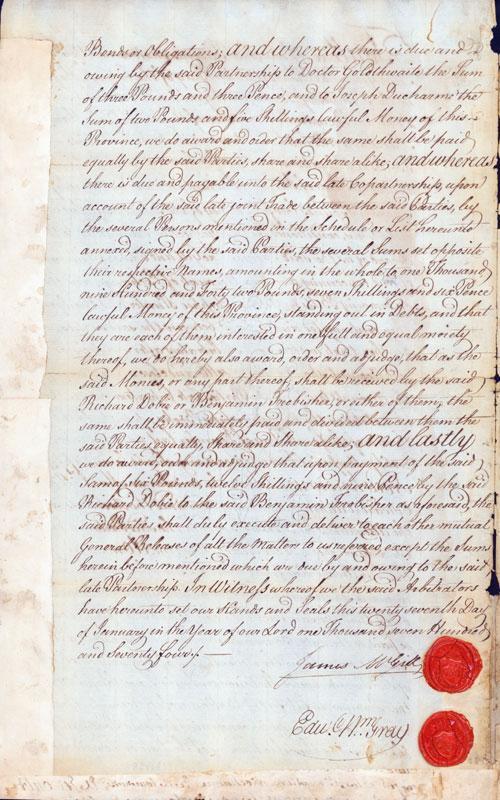 Bonds or Obligations; and whereas there is due and
owing by the said Partnership to Doctor Goldthwaite the Sum
of three Pounds and three Pence, and to Joseph Ducharme the
Sum of two Pounds and five Shillings lawful Money of this
Province, we do award and order that the same shall be paid
equally by the said Parties, share and share alike; and whereas
there is due and payable unto the said late Copartnership, upon
account of the said late joint Trade between the said Parties, by
the several Persons mentioned in the Schedule or List hereunto
annexed, signed by the said Parties, the several Sums set opposite
their respective Names, amounting in the whole to one Thousand
nine Hundred and Forty two Pounds, seven Shillings and six Pence
lawful Money of this Province, standing out in Debts, and that
they are each of them interested in one full and equal moiety
thereof, we do hereby also award, order and adjudge, that as the
said Monies, or any part thereof, shall be received by the said
Richard Dobie or Benjamin Frobisher, or either of them, the
same shall be immediately paid and divided between them the
said Parties equally, share and share alike; and lastly
we do award, order and adjudge that upon payment of the said
Sum of Six Pounds, twelve Shillings and nine Pence, by the said
Richard Dobie to the said Benjamin Frobisher as aforesaid, the
said Parties shall duly execute and deliver to each other mutual
General Releases of all the Matters to us referred, except the Sums
herein before mentioned which are due by and owing to the said
late Partnership. In Witness whereof we the said Arbitrators
have hereunto set our Hands and Seals this twenty seventh Day
of January in the Year of our Lord one Thousand seven Hundred
and Seventy four.
James McGill
Edwd Wm Gray